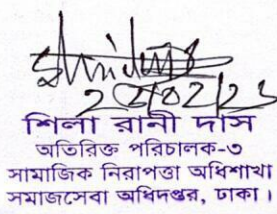 শিলা রানী দাস
অতিরিক্ত পরিচালক-৩
সামাজিক নিরাপত্তা অধিশাখা
সমাজসেবা অধিদপ্তর, ঢাকা।